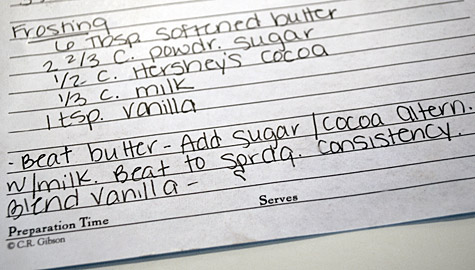 Frosting
6 Tbsp. softened butter
2 2/3 C. powdr. sugar
1/2 C. Hershey's cocoa
1/3 C. milk
1 tsp. vanilla
- Beat butter - Add sugar / cocoa altern.
w/milk. Beat to sprdg. consistency.
Blend vanilla -
Serves
Preparation Time
© C.R. Gibson